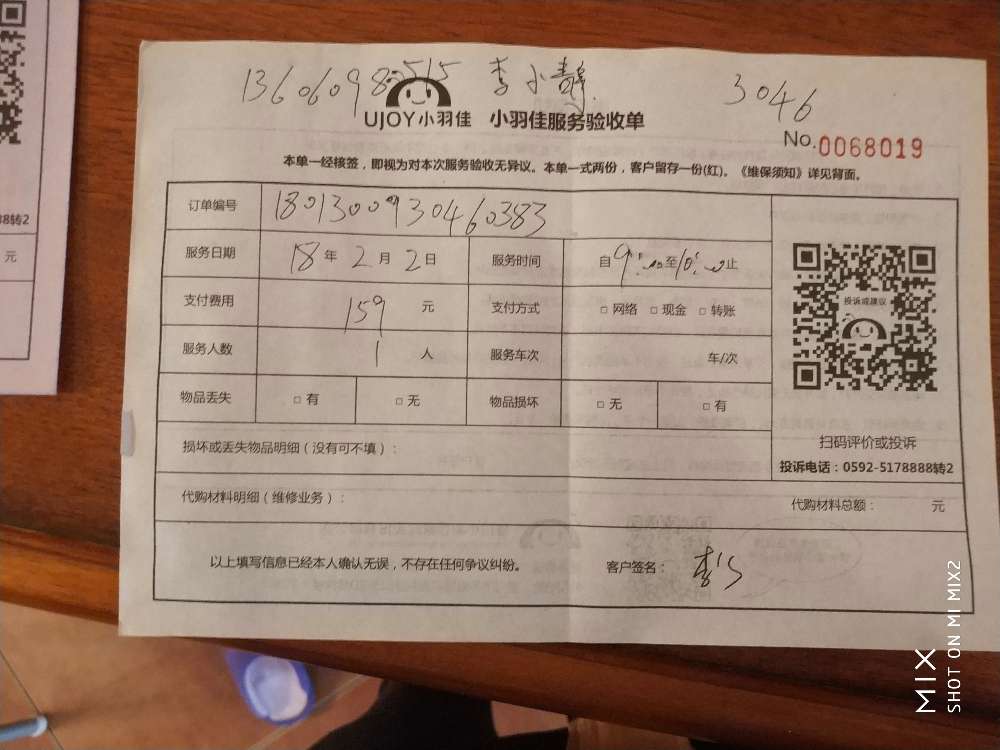 13606098515 李小静 3046
UJOY小羽佳 小羽佳服务验收单
No.0068019
本单一经接签，即视为对本次服务验收无异议。本单一式两份，客户留存一份(红)。《维保须知》详见背面。
订单编号 1801300930460383
服务日期 18年2月2日 服务时间 自9:00至10:00止
支付费用 159元 支付方式 □网络 □现金 □转账
服务人数 1人 服务车次 车/次
物品丢失 □有 □无 物品损坏 □无 □有
投诉或建议
扫码评价或投诉
投诉电话：0592-5178888转2
损坏或丢失物品明细（没有可不填）：
代购材料明细（维修业务）： 代购材料总额： 元
以上填写信息已经本人确认无误，不存在任何争议纠纷。 客户签名： 李小
88转2
元
MIX
SHOT ON MI MIX2